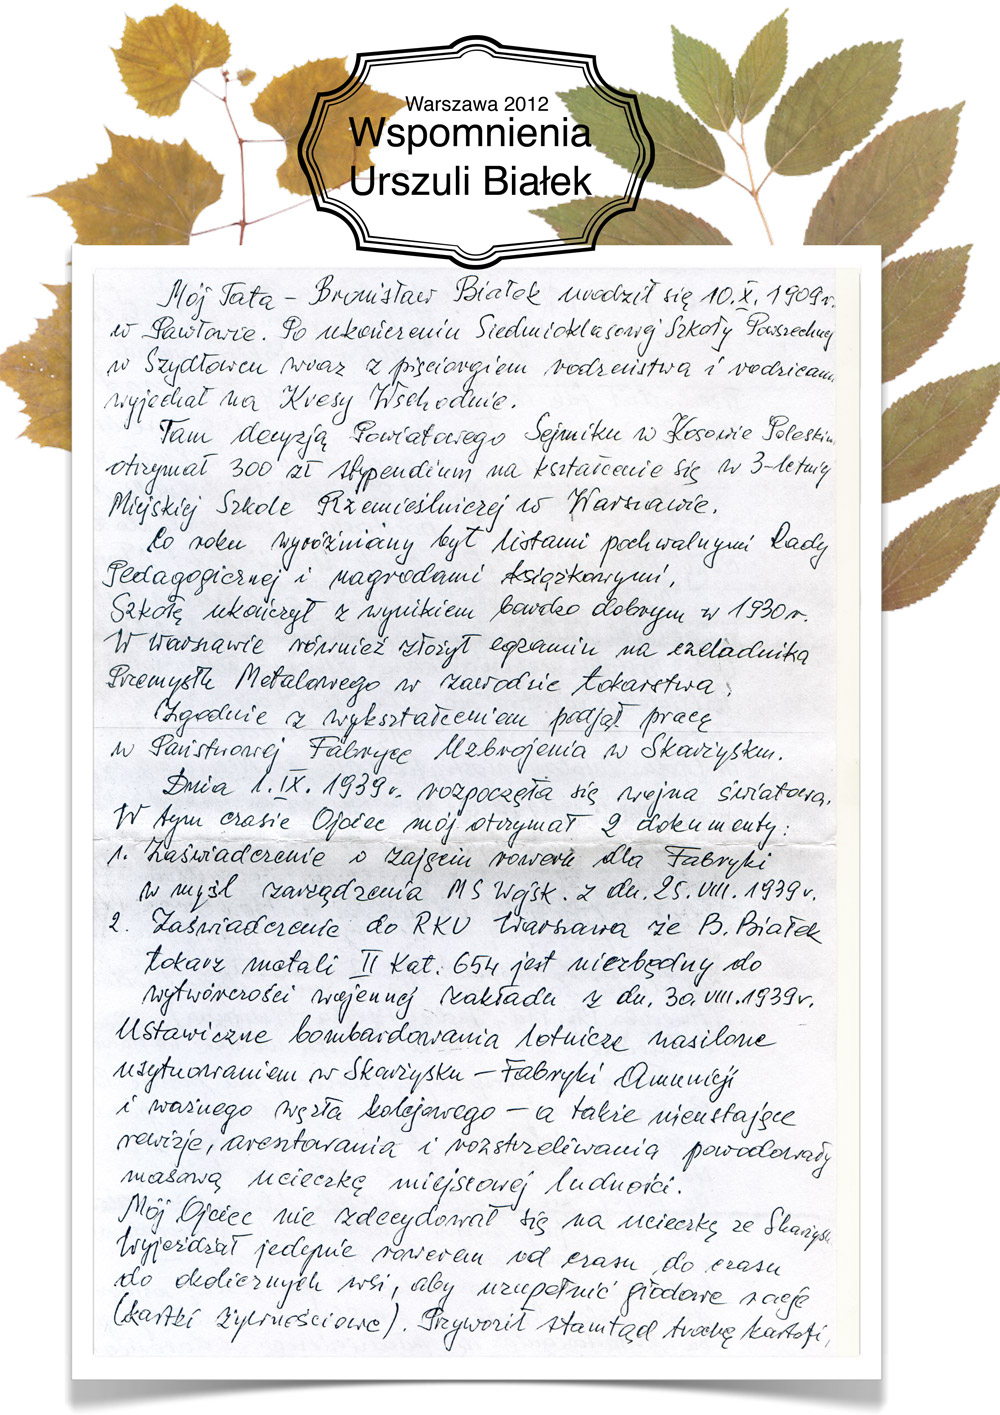 Warszawa 2012
Wspomnienia
Urszuli Białek
Mój Tata - Bronisław Białek urodził się 10.X.1909r.
w Pawłowie. Po ukończeniu Siedmioklasowej Szkoły Powszechnej
w Szydłowcu wraz z pięciorgiem rodzeństwa i rodzicami
wyjechał na Kresy Wschodnie.
Tam decyzją Powiatowego Sejmiku w Kosowie Poleskim
otrzymał 300 zł stypendium na kształcenie się w 3-letniej
Miejskiej Szkole Rzemieślniczej w Warszawie.
Co roku wyróżniany był listami pochwalnymi Rady
Pedagogicznej i nagrodami książkowymi,
Szkołę ukończył z wynikiem bardzo dobrym w 1930r.
W Warszawie również złożył egzamin na czeladnika
Przemysłu Metalowego w zawodzie tokarstwa.
Zgodnie z wykształceniem podjął pracę
w Państwowej Fabryce Uzbrojenia w Skarżysku.
Dnia 1.IX.1939r. rozpoczęła się wojna światowa.
W tym czasie Ojciec mój otrzymał 2 dokumenty:
1. Zaświadczenie o zajęciu roweru dla Fabryki
w myśl zarządzenia MS Wojsk. z dn. 25.VIII.1939r.
2. Zaświadczenie do RKU Warszawa że B. Białek
tokarz metali II Kat. 654 jest niezbędny do
wytwórczości wojennej zakładu z dn. 30.VIII.1939r.
Ustawiczne bombardowania lotnicze nasilone
usytuowaniem w Skarżysku - Fabryki Amunicji
i ważnego węzła kolejowego - a także nieustające
rewizje, aresztowania i rozstrzeliwania powodowały
masową ucieczkę miejscowej ludności.
Mój Ojciec nie zdecydował się na ucieczkę ze Skarżyska
Wyjeżdżał jedynie rowerem od czasu do czasu
do okolicznych wsi, aby uzupełnić głodowe racje
(kartki żywnościowe). Przywoził stamtąd trochę kartofli,